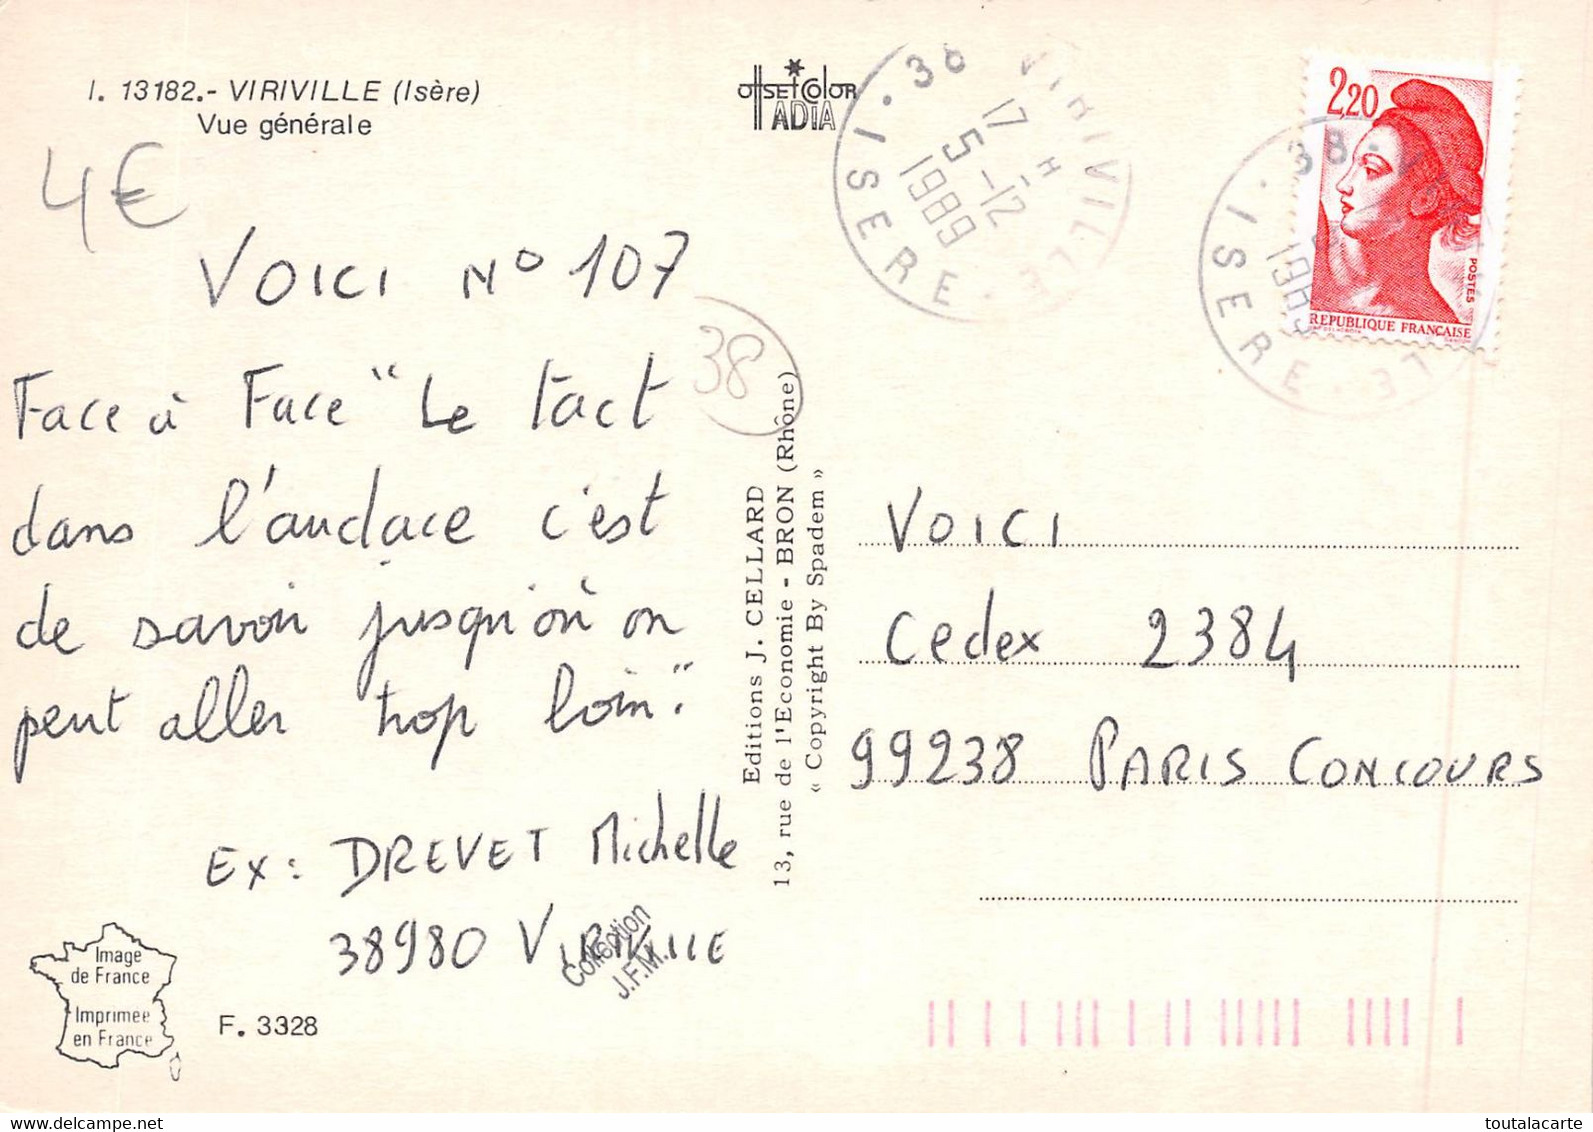 I. 13182.- VIRIVILLE (Isère)
Vue générale
OffSEtColoR
ADIA
4€
VOICI N° 107
38
Face à Face "Le tact
dans l'audace c'est
de savoir jusqu'où on
peut aller trop loin."
Ex: DREVET Michelle
38980 VIRIVILLE
Collection
J.F.M.
Image
de France
Imprimée
en France
F. 3328
Editions J. CELLARD
13, rue de l'Economie - BRON (Rhône)
« Copyright By Spadem »
38 VIRIVILLE
17 H
5-12
1989
ISERE
2,20
POSTES
REPUBLIQUE FRANÇAISE
38-
1989
ISERE
VOICI
Cedex 2384
99238 PARIS CONCOURS
toutalacarte